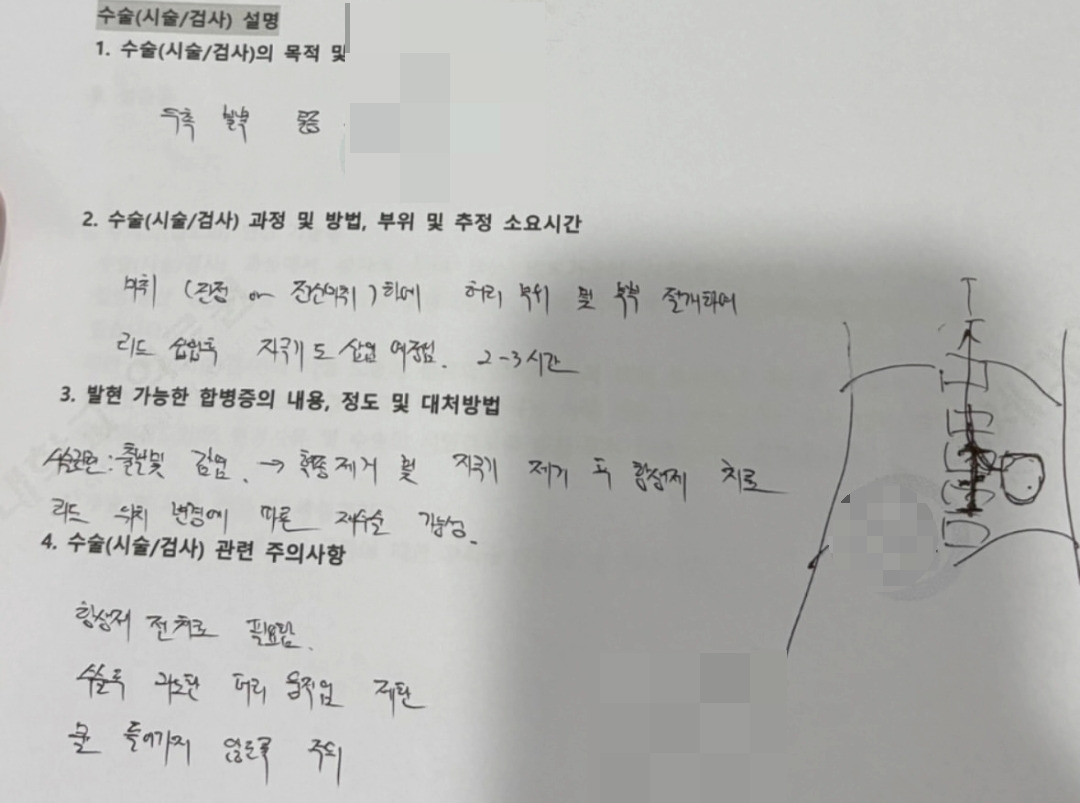 수술(시술/검사) 설명
1. 수술(시술/검사)의 목적 및
우측 발부 통증
2. 수술(시술/검사) 과정 및 방법, 부위 및 추정 소요시간
마취 (진정 or 전신마취) 하에 허리 부위 및 둔부 절개하여
리드 삽입후 자극기도 삽입 예정임. 2-3시간
3. 발현 가능한 합병증의 내용, 정도 및 대처방법
출혈 및 감염. → 혈종제거 및 자극기 제거 후 항생제 치료
리드 위치 변경에 따른 재수술 가능성.
4. 수술(시술/검사) 관련 주의사항
항생제 전처치 필요함.
수술후 과도한 허리 움직임 제한
물 들어가지 않도록 주의
T